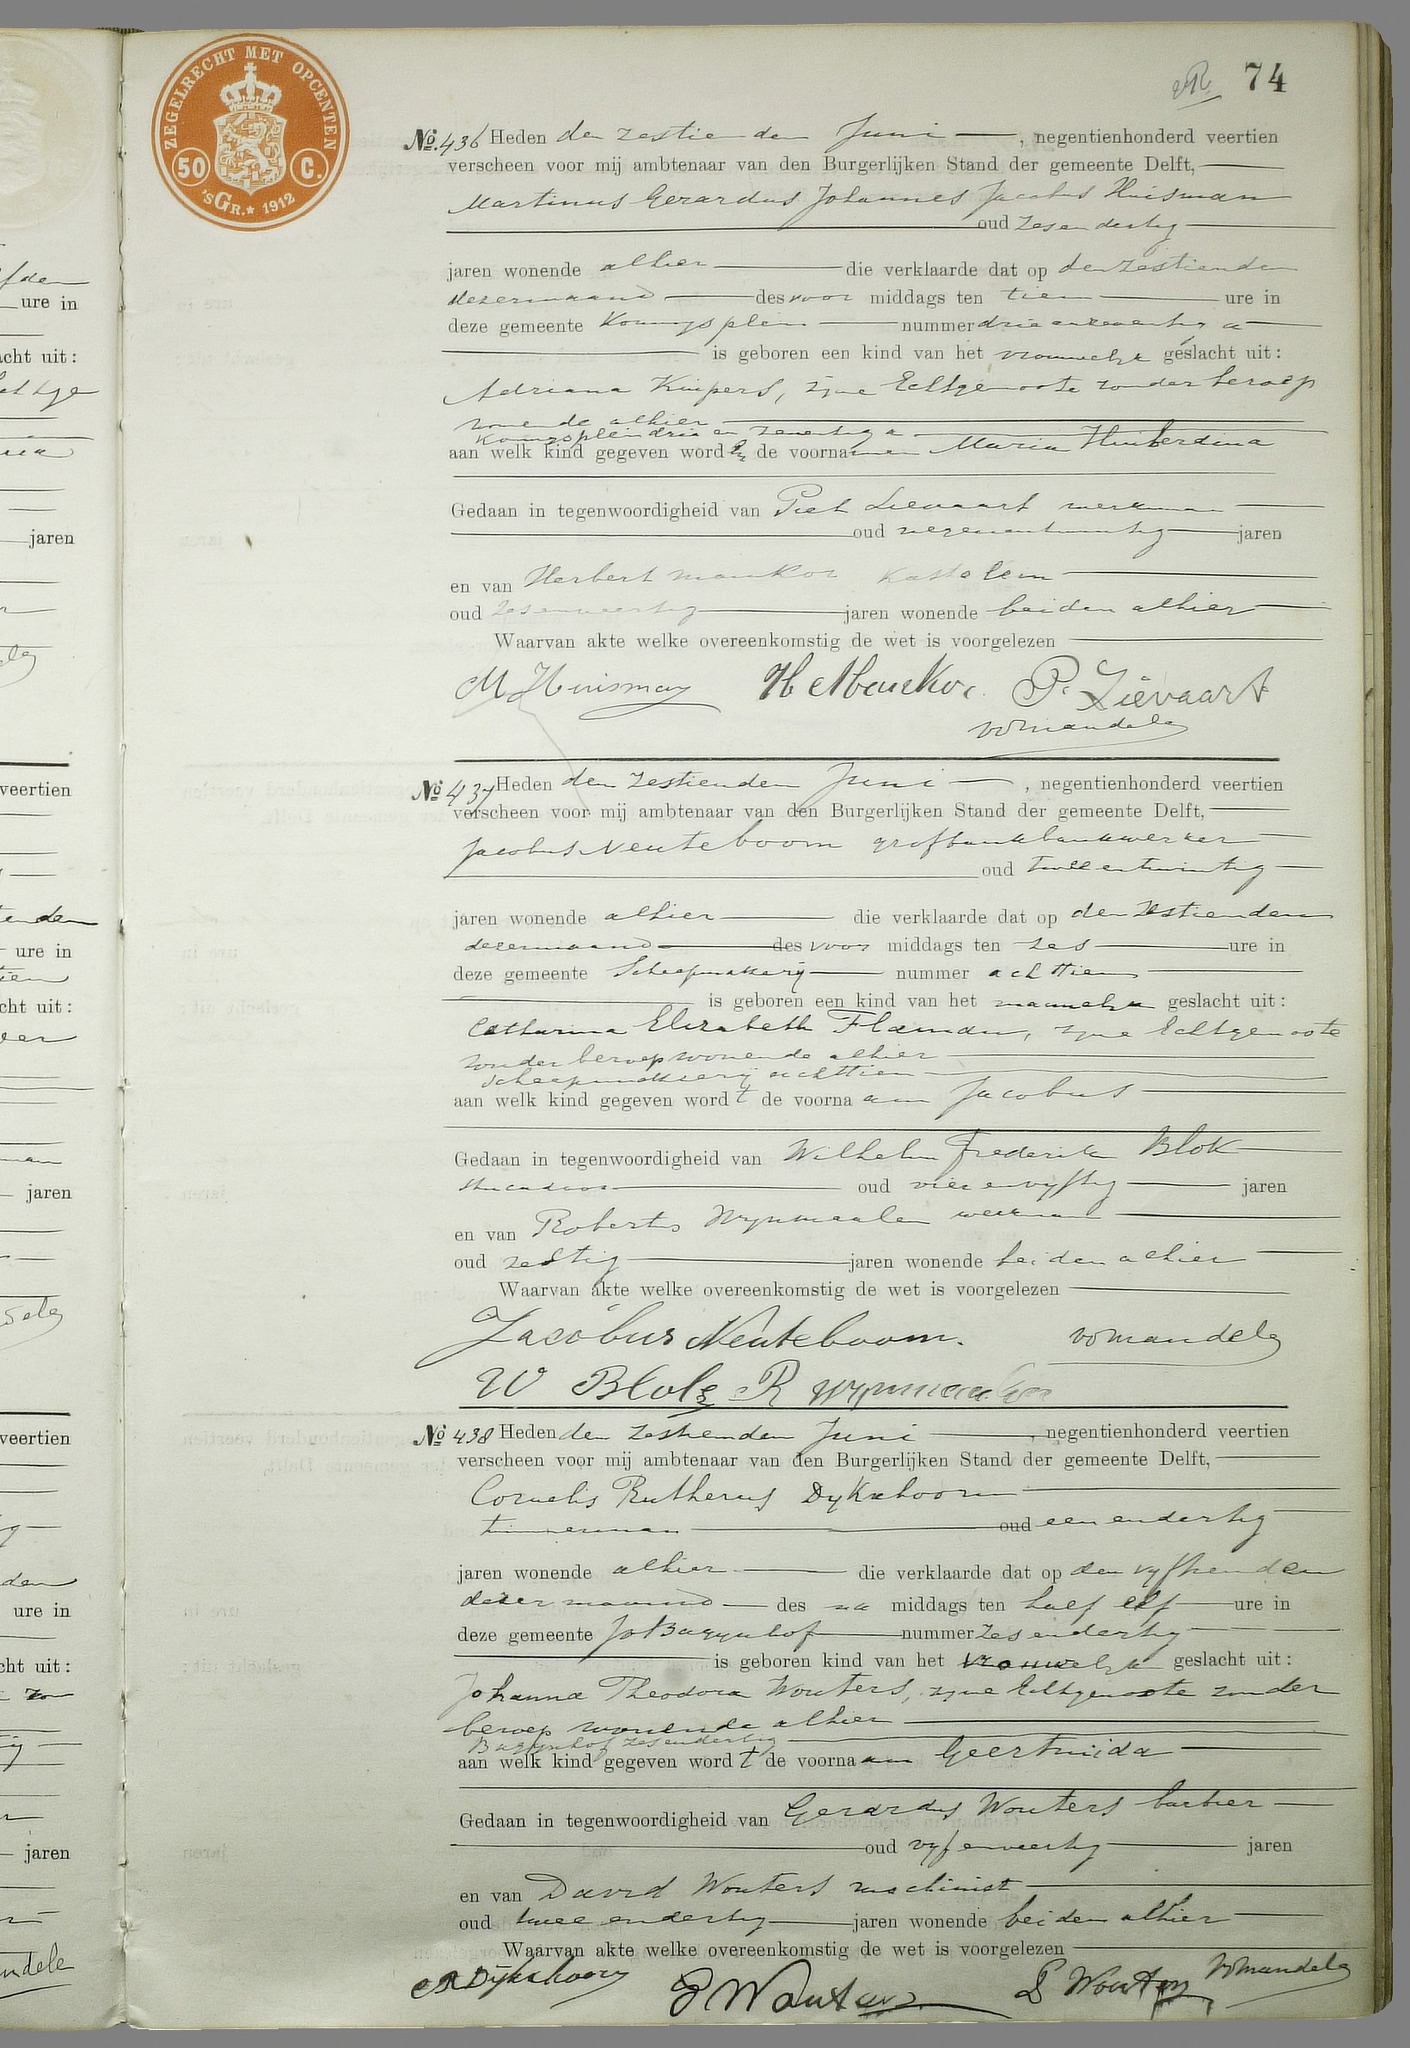 ZEGELRECHT MET OPCENTEN
50 C.
'SGR. * 1912
74
No. 436 Heden den zestienden Juni, negentienhonderd veertien
verscheen voor mij ambtenaar van den Burgerlijken Stand der gemeente Delft,
Martinus Gerardus Johannes Jacobus Huisman
oud zesendertig
jaren wonende alhier die verklaarde dat op den zestienden
dezermaand des voor middags ten tien ure in
deze gemeente Koningsplein nummer drie en zeventig a
is geboren een kind van het vrouwelijk geslacht uit:
Adriana Kuipers, zijne Echtgenoote zonder beroep
wonende alhier
Koningsplein drie en zeventig a
aan welk kind gegeven word en de voorna men Maria Huiberdina
Gedaan in tegenwoordigheid van Piet Lievaart werkman
oud negenentwintig jaren
en van Herbert Maukor Kastelein
oud zesenveertig jaren wonende beiden alhier
Waarvan akte welke overeenkomstig de wet is voorgelezen
M Huisman H Maukor. P. Lievaart
No 437 Heden den zestienden Juni, negentienhonderd veertien
verscheen voor mij ambtenaar van den Burgerlijken Stand der gemeente Delft,
Jacobus Neuteboom grofbankwerker
oud twee entwintig
jaren wonende alhier die verklaarde dat op den zestienden
dezermaand des voor middags ten zes ure in
deze gemeente Scheepmakerij nummer achttien
is geboren een kind van het mannelijk geslacht uit:
Catharina Elizabeth Flaman, zijne Echtgenoote
zonder beroep wonende alhier
Scheepmakerij achttien
aan welk kind gegeven word t de voorna am Jacobus
Gedaan in tegenwoordigheid van Wilhelm Frederik Blok
stucadoor oud vier envijftig jaren
en van Robertus Wijnmaalen werkman
oud zestig jaren wonende beiden alhier
Waarvan akte welke overeenkomstig de wet is voorgelezen
Jacobus Neuteboom.
W Blok R Wijnmaalen
No 438 Heden den zestienden Juni, negentienhonderd veertien
verscheen voor mij ambtenaar van den Burgerlijken Stand der gemeente Delft,
Cornelis Rutherus Dijkshoorn
timmerman oud een endertig
jaren wonende alhier die verklaarde dat op den vijftienden
dezer maand des na middags ten half elf ure in
deze gemeente Bagijnhof nummer zes endertig
is geboren kind van het vrouwelijk geslacht uit:
Johanna Theodora Wouters, zijne Echtgenoote zonder
beroep wonende alhier
Bagijnhof zesendertig
aan welk kind gegeven word t de voorna am Geertruida
Gedaan in tegenwoordigheid van Gerardus Wouters barbier
oud vijf enveertig jaren
en van David Wouters machinist
oud twee endertig jaren wonende beiden alhier
Waarvan akte welke overeenkomstig de wet is voorgelezen
CR Dijkshoorn G Wouters D Wouters